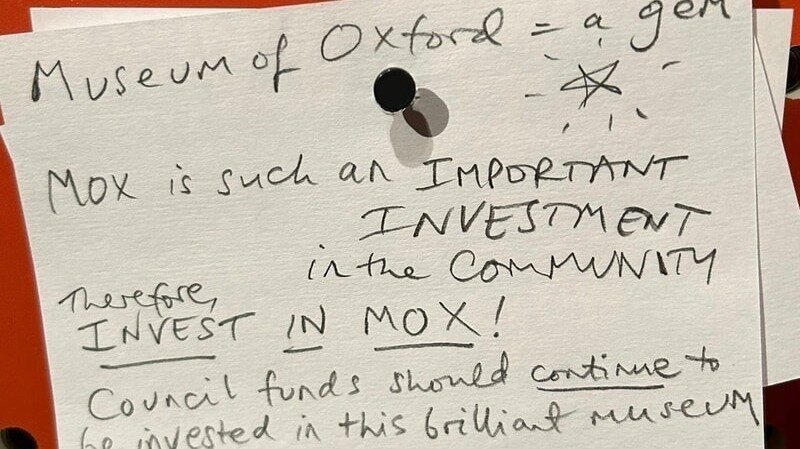 Museum of Oxford = a gem
MOX is such an IMPORTANT
INVESTMENT
in the COMMUNITY
Therefore,
INVEST IN MOX!
Council funds should continue to
be invested in this brilliant museum